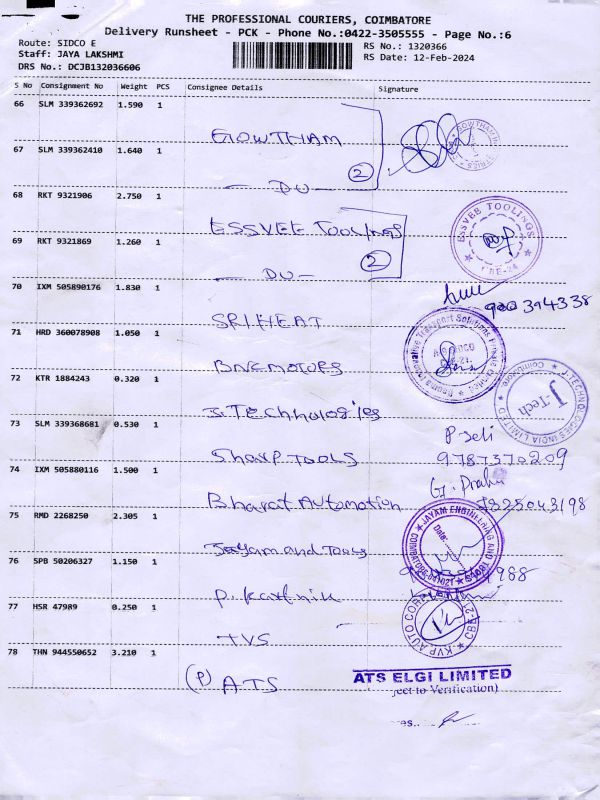 THE PROFESSIONAL COURIERS, COIMBATORE
Delivery Runsheet - PCK - Phone No.:0422-3505555 - Page No.:6
Route: SIDCO E
RS No.: 1320366
Staff: JAYA LAKSHMI
RS Date: 12-Feb-2024
DRS No.: DCJB132036606
S No Consignment No Weight PCS Consignee Details Signature
66 SLM 339362692 1.590 1
GOWTHAM
67 SLM 339362410 1.640 1
2
— DU —
68 RKT 9321906 2.750 1
ESSVEE TOOLINGS
ESSVEE TOOLINGS
CBE-24
69 RKT 9321869 1.260 1
2
— DU —
70 IXM 505890176 1.830 1
SRI HEAT
71 HRD 360078908 1.050 1
72 KTR 1884243 0.320 1
J. Technologies
J-TECHNOLOGIES INDIA LIMITED
J-Tech
Coimbatore
73 SLM 339368681 0.530 1
Sharp TOOLS
9787370209
74 IXM 505880116 1.500 1
G. Prabu
Bharat Automation
75 RMD 2268250 2.305 1
JAYAM ENGINEERING AND TOOLS
COIMBATORE-641021
Date:
Jayam and Tools
76 SPB 50206327 1.150 1
P. Karthik
77 HSR 47989 0.250 1
KVP AUTO CORP
CBE-21
TVS
78 THN 944550652 3.210 1
(P) ATS
ATS ELGI LIMITED
ject to Verification)